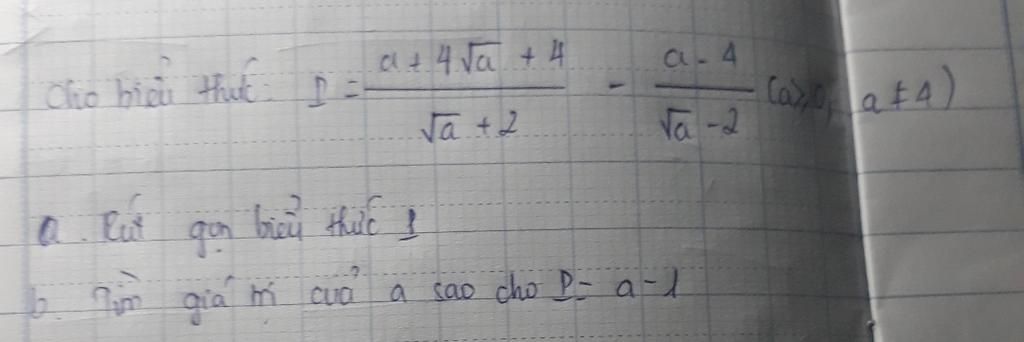 Cho biểu thức: P = (a + 4√a + 4)/(√a + 2) - (a - 4)/(√a - 2) (a ≥ 0, a ≠ 4)
a. Rút gọn biểu thức P
b. Tìm giá trị của a sao cho P = a - 1